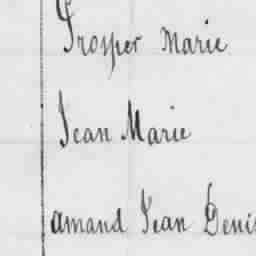 Prosper Marie
Jean Marie
amand Jean Denis